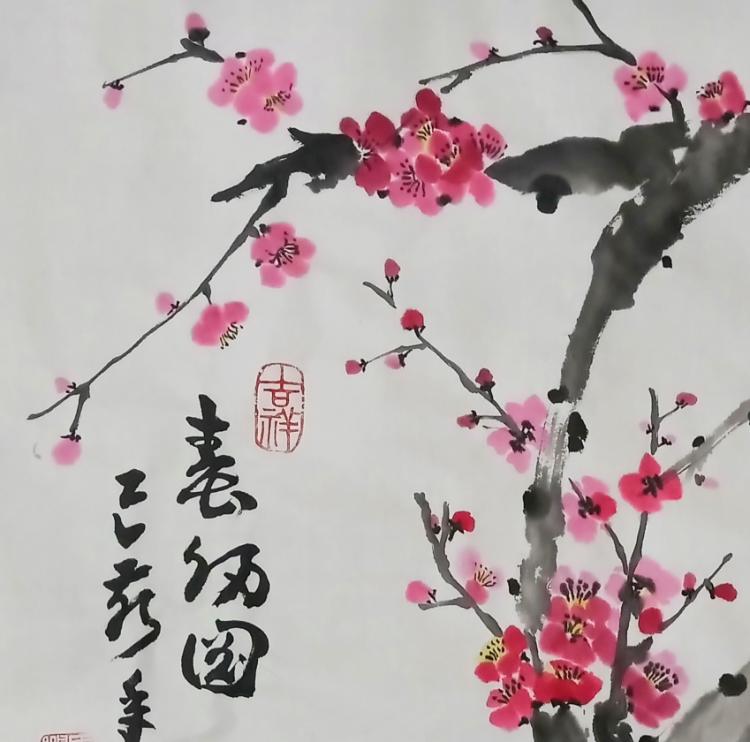 吉祥
春图
己亥年